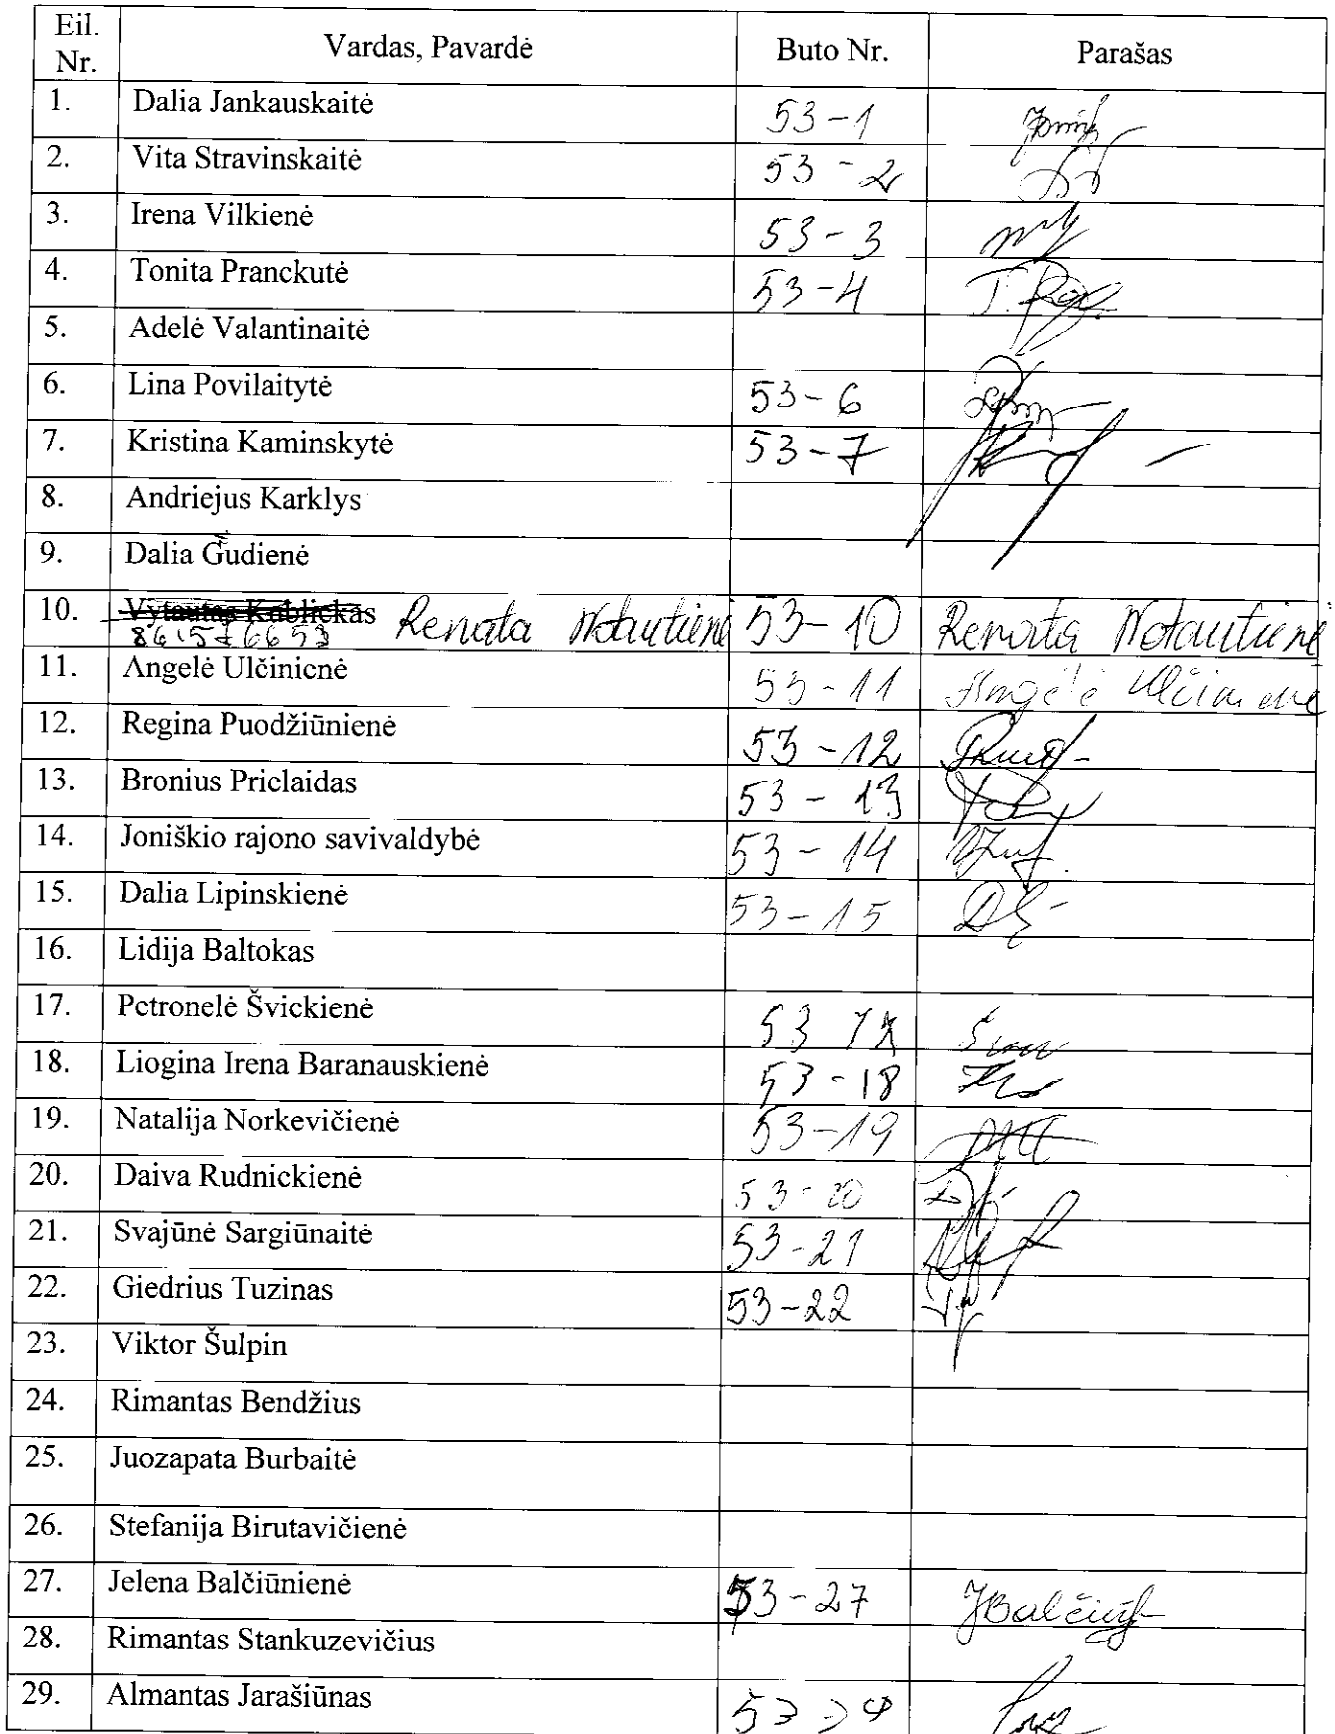 Eil. Nr. Vardas, Pavardė Buto Nr. Parašas
1. Dalia Jankauskaitė 53-1
2. Vita Stravinskaitė 53-2
3. Irena Vilkienė 53-3
4. Tonita Pranckutė 53-4
5. Adelė Valantinaitė
6. Lina Povilaitytė 53-6
7. Kristina Kaminskytė 53-7
8. Andriejus Karklys
9. Dalia Gudienė
10. Vytautas Kablickas Renata Notautienė 53-10 Renata Notautienė
11. Angelė Ulčinienė 53-11 Angelė Ulčinienė
12. Regina Puodžiūnienė 53-12
13. Bronius Prielaidas 53-13
14. Joniškio rajono savivaldybė 53-14
15. Dalia Lipinskienė 53-15
16. Lidija Baltokas
17. Petronelė Švickienė 53
18. Liogina Irena Baranauskienė 53-18
19. Natalija Norkevičienė 53-19
20. Daiva Rudnickienė 53-20
21. Svajūnė Sargiūnaitė 53-21
22. Giedrius Tuzinas 53-22
23. Viktor Šulpin
24. Rimantas Bendžius
25. Juozapata Burbaitė
26. Stefanija Birutavičienė
27. Jelena Balčiūnienė 53-27
28. Rimantas Stankuzevičius
29. Almantas Jarašiūnas